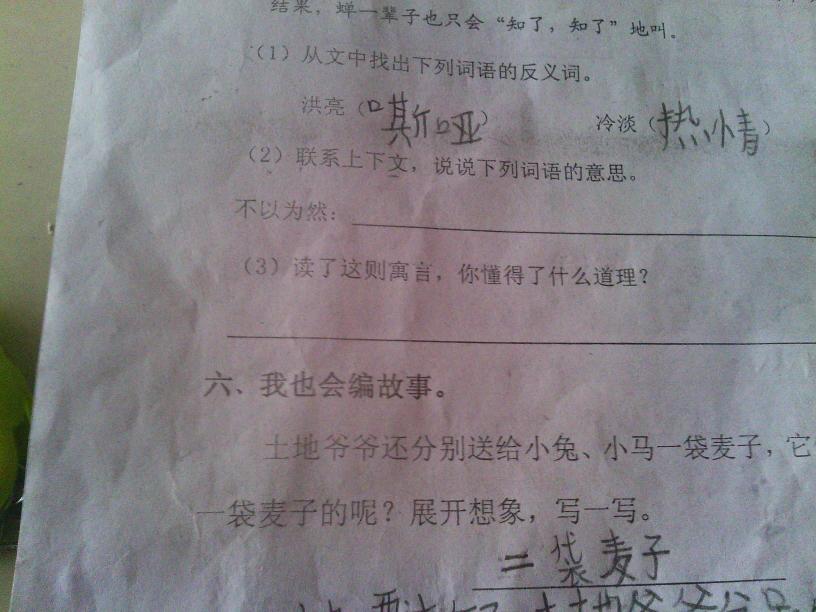 结果，蝉一辈子也只会“知了，知了”地叫。
（1）从文中找出下列词语的反义词。
洪亮（嘶哑） 冷淡（热情）
（2）联系上下文，说说下列词语的意思。
不以为然：
（3）读了这则寓言，你懂得了什么道理？
六、我也会编故事。
土地爷爷还分别送给小兔、小马一袋麦子，它
一袋麦子的呢？展开想象，写一写。
二袋麦子
土地爷爷